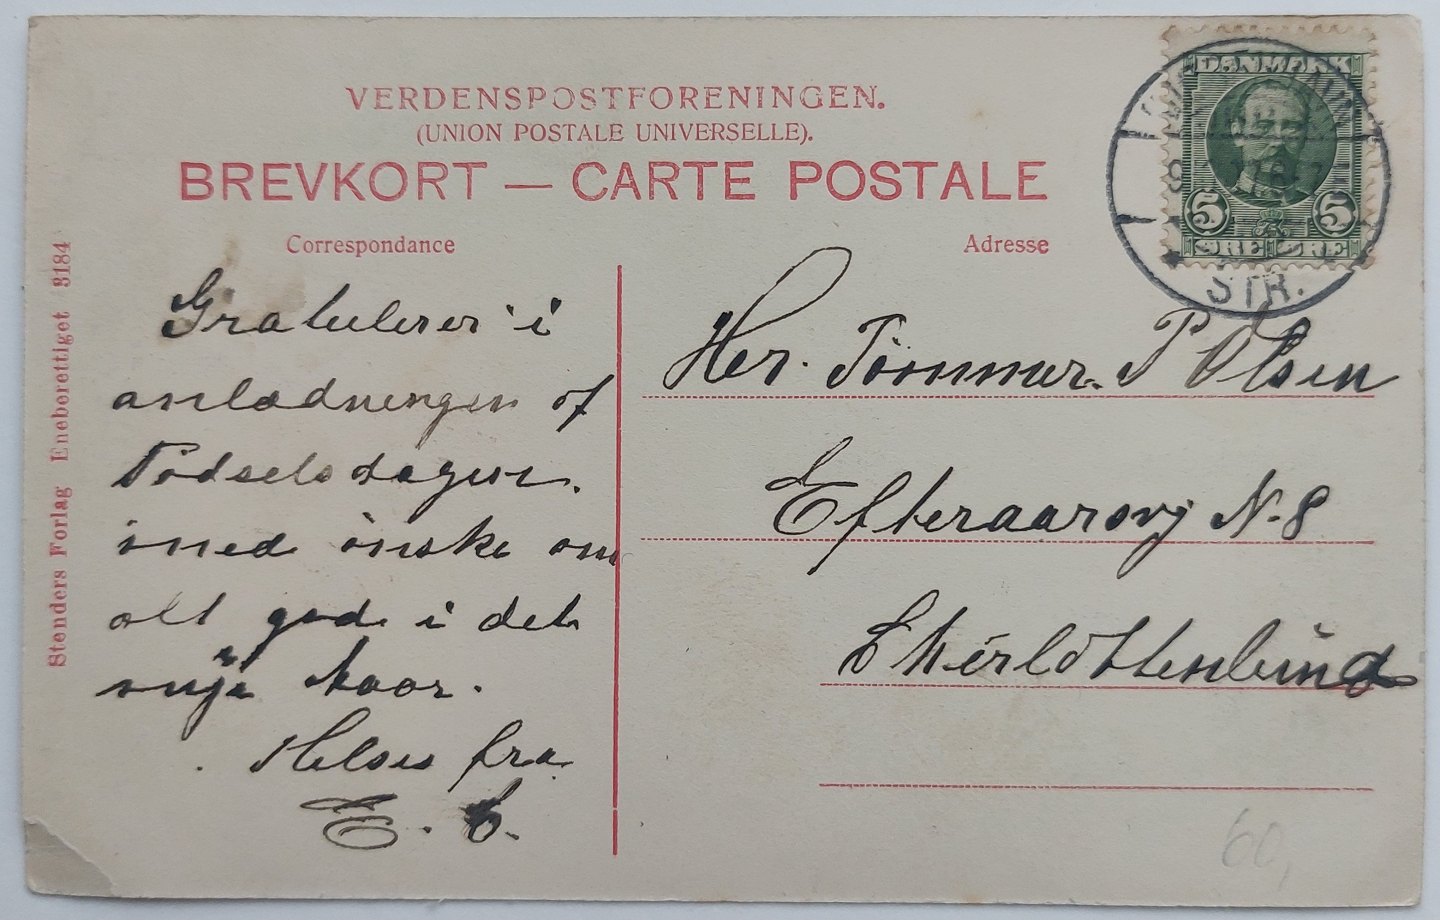 VERDENSPOSTFORENINGEN.
(UNION POSTALE UNIVERSELLE).
BREVKORT — CARTE POSTALE
Correspondance
Adresse
Stenders Forlag Eneberettiget 3184
DANMARK
5 5
ØRE ØRE
STR.
Gratulerer i
anledningen af
Födselsdagen.
med önske om
alt god i det
nyje Aaar.
Helsen fra
E. C.
Her. Tömmer. P Olsen
Efteraarsvj N. 8
Charlottenlund
60,